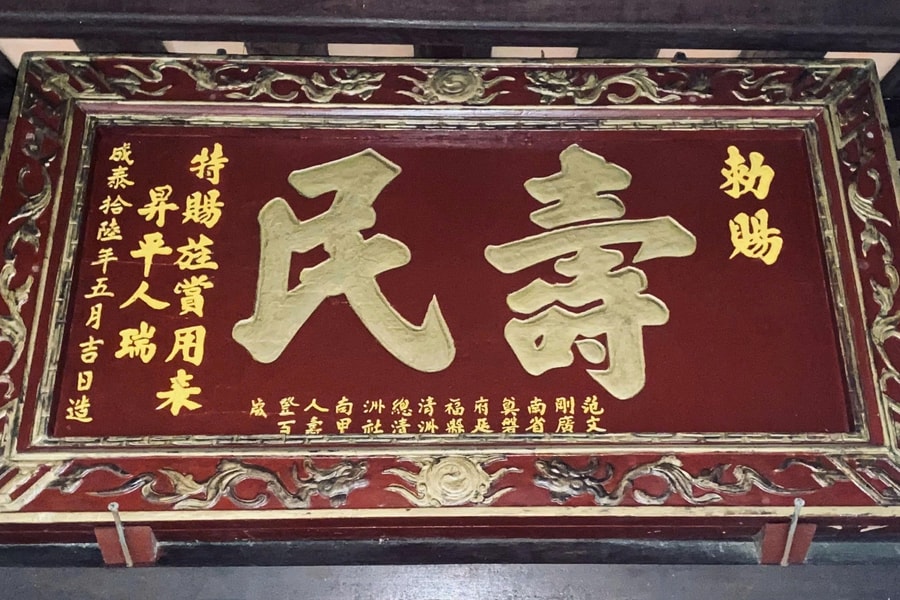 勅賜
壽民
范文
剛廣
南省
奠磐
府延
福縣
清洲
總清
洲社
南甲
人壽
登百
歲
特賜旌賞用来
昇平人瑞
成泰拾陸年五月吉日造